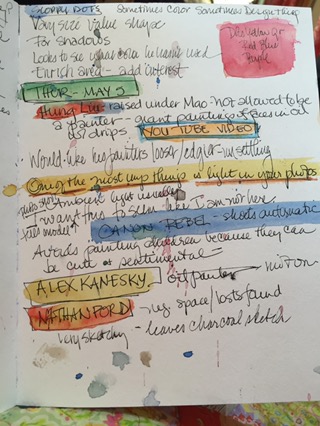 SLOPPY DOTS Sometimes Color Sometimes Design thing
Vary size value shape
For shadows
Looks to see what color he hasn't used
Enrich area - add interest
THEIR - MAY 5
Hung Liu - raised under Mao - not allowed to be
a painter - giant paintings of faces in oil
w/ drips. YOU TUBE VIDEO
Would like big painters looser/edgier - unsettling
One of the most imp things is light in your photos
Ambient light usually
I want this to seem like I am not here
CANON REBEL - shoots automatic
Avoids painting children because they can
be cute or sentimental -
ALEX KANESKY oil painter
NATHAN FORD - my space/losts found
Very sketchy - leaves charcoal sketch